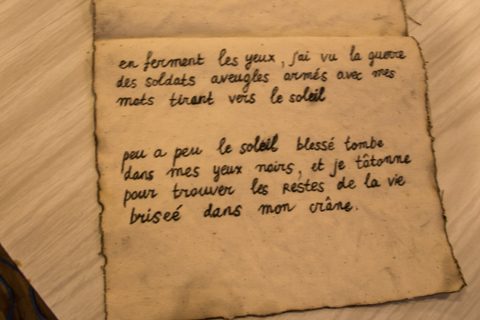 en ferment les yeux, j'ai vu la guerre
des soldats aveugles armés avec mes
mots tirant vers le soleil
peu a peu le soleil blessé tombe
dans mes yeux noirs, et je tâtonne
pour trouver les restes de la vie
briseé dans mon crâne.